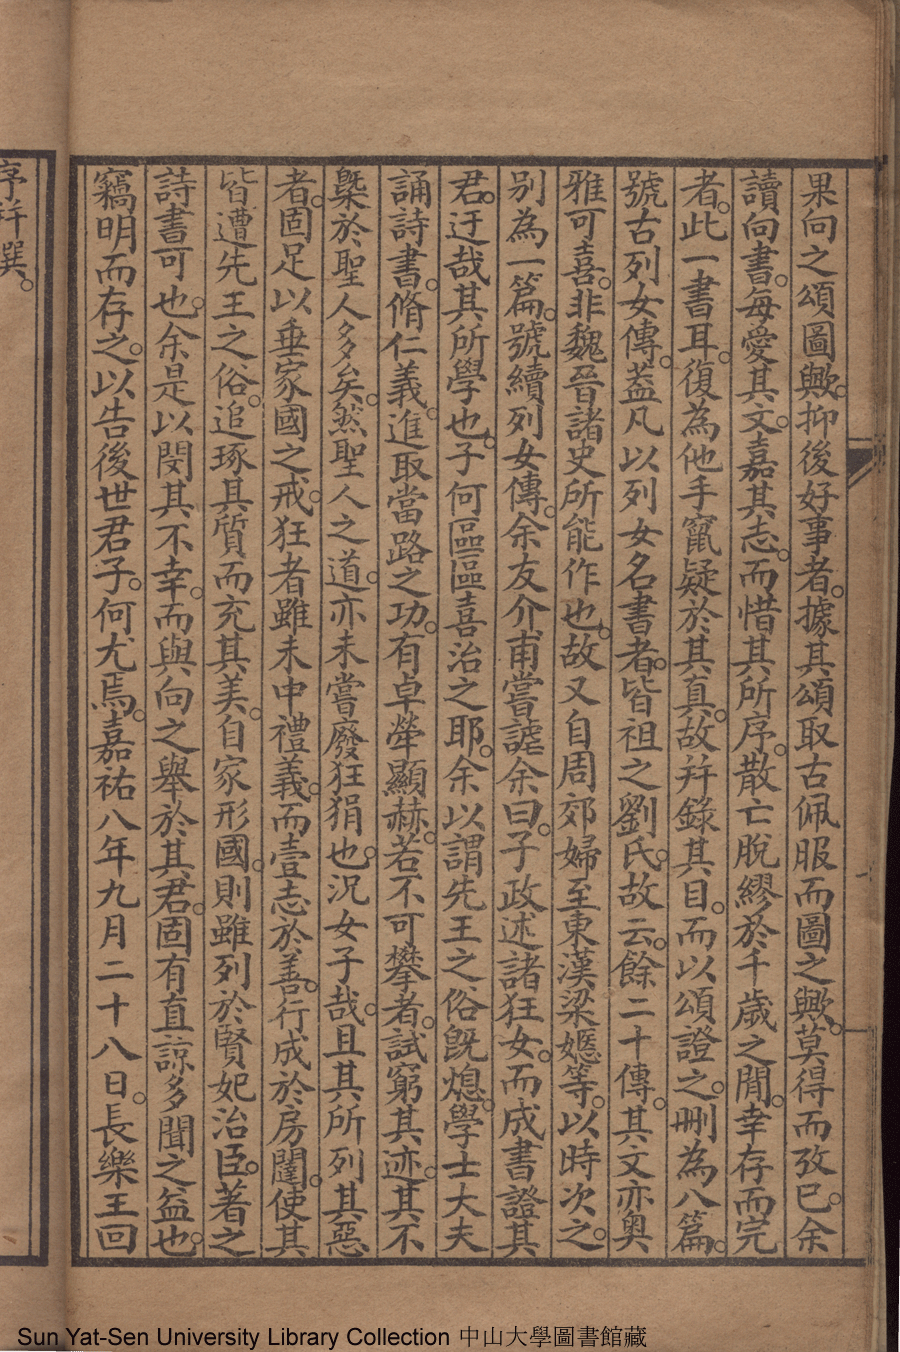 果向之頌圖歟。抑後好事者。據其頌取古佩服而圖之歟。莫得而攷已。余
讀向書。每愛其文。嘉其志。而惜其所序。散亡脫繆於千歲之間。幸存而完
者。此一書耳。復為他手竄疑於其真。故并錄其目。而以頌證之。刪為八篇。
號古列女傳。葢凡以列女名書者。皆祖之劉氏。故云。餘二十傳。其文亦奥
雅可喜。非魏晉諸史所能作也。故又自周郊婦至東漢梁嫕等。以時次之。
别為一篇。號續列女傳。余友介甫嘗謔余曰。子政述諸狂女。而成書證其
君。迂哉其所學也。子何區區喜治之耶。余以謂先王之俗旣熄。學士大夫
誦詩書。脩仁義。進取當路之功。有卓犖顯赫。若不可攀者。試窮其迹。其不
槩於聖人多矣。然聖人之道。亦未嘗廢狂狷也。況女子哉。且其所列其惡
者。固足以垂家國之戒。狂者雖未中禮義。而壹志於善。行成於房闥。使其
皆遭先王之俗。追琢其質而充其美。自家形國。則雖列於賢妃治臣。著之
詩書可也。余是以閔其不幸。而與向之舉於其君。固有直諒多聞之益也。
竊明而存之。以告後世君子。何尤焉。嘉祐八年九月二十八日。長樂王回
序并撰。
Sun Yat-Sen University Library Collection 中山大學圖書館藏